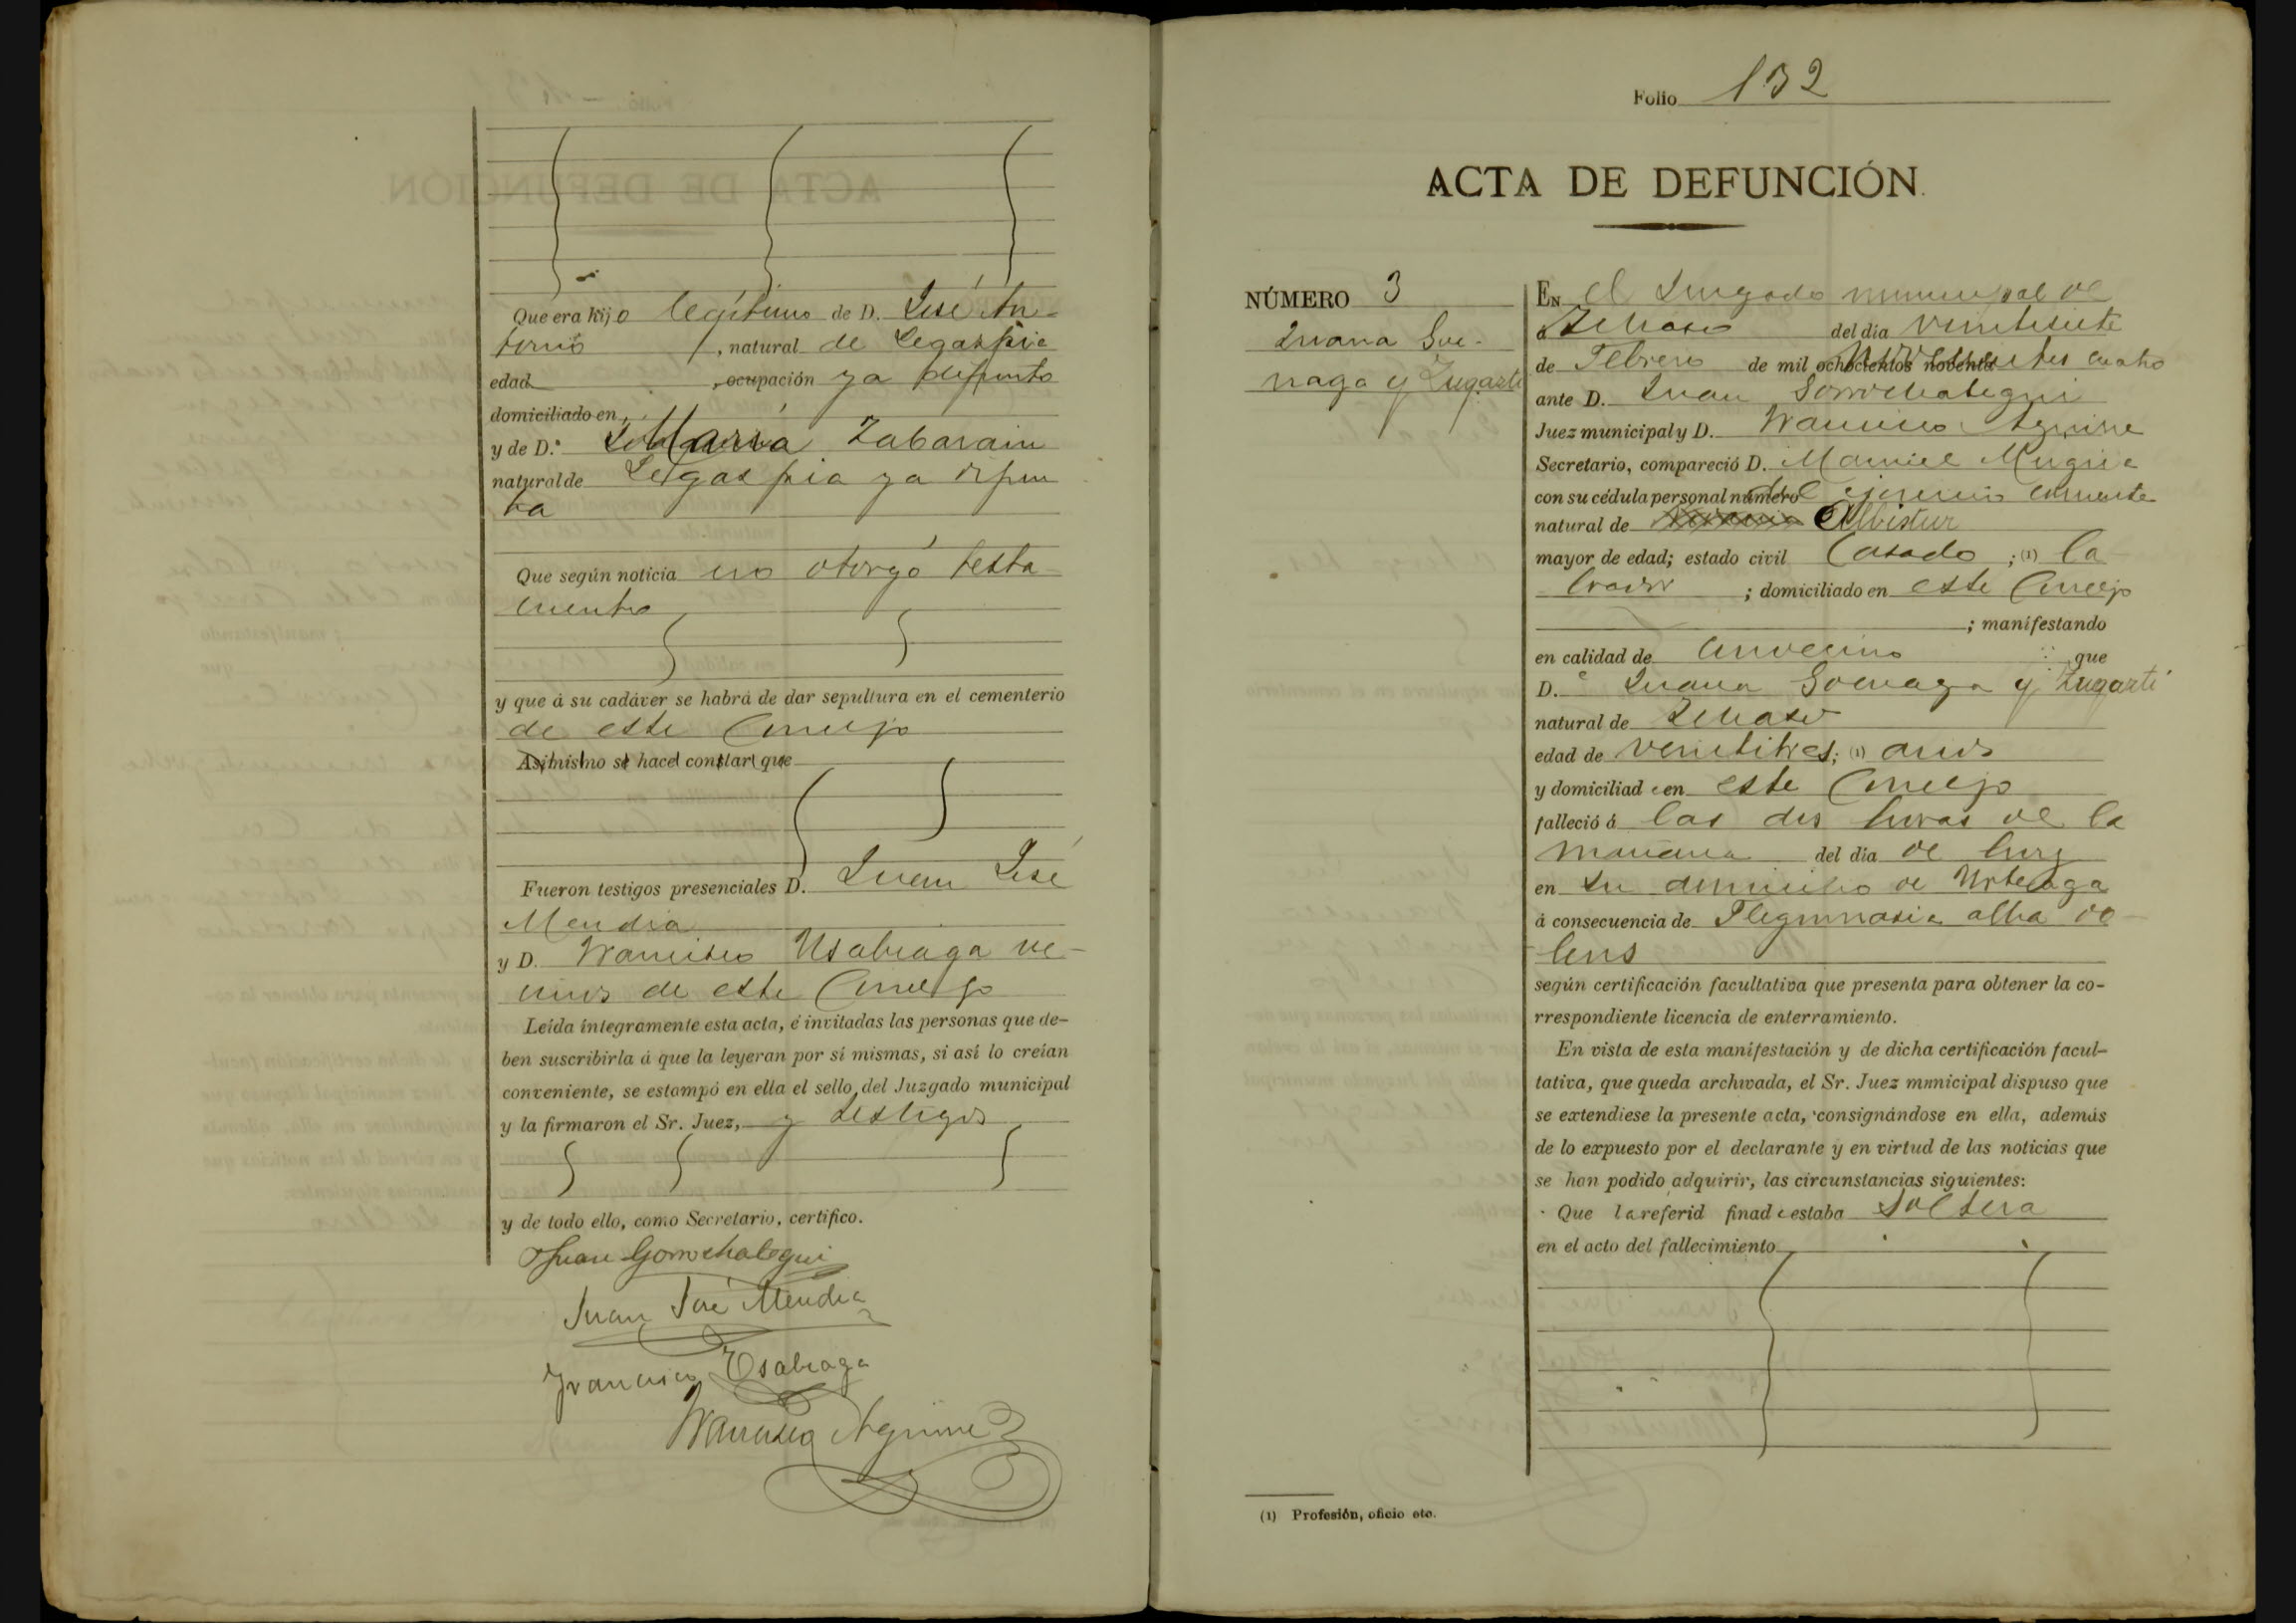 Que era hijo legítimo de D. José An-
tonio, natural de Legazpia
edad, ocupación ya difunto
domiciliado en
y de D.ª María Zabarain
natural de Legaspia ya difun
ta
Que según noticia no otorgó testa
mento
y que á su cadáver se habrá de dar sepultura en el cementerio
de este Concejo
Asimismo se hace constar que
Fueron testigos presenciales D. Juan José
Mendia
y D. Francisco Usabiaga ve-
cinos de este Concejo
Leída íntegramente esta acta, é invitadas las personas que de-
ben suscribirla á que la leyeran por sí mismas, si así lo creían
conveniente, se estampó en ella el sello del Juzgado municipal
y la firmaron el Sr. Juez, y testigos
y de todo ello, como Secretario, certifico.
Juan Gorrochategui
Juan José Mendia
Francisco Usabiaga
Francisco Aguirre
Folio 132
ACTA DE DEFUNCIÓN.
NÚMERO 3
Juana Goe-
naga y Zugasti
En el Juzgado municipal de
á Ichaso del día veintisiete
de Febrero de mil ochocientos noventa novecientos cuatro
ante D. Juan Gorrochategui
Juez municipal y D. Francisco Aguirre
Secretario, compareció D. Manuel Mugica
con su cédula personal número del ejercicio corriente
natural de Albistur
mayor de edad; estado civil Casado; (1) la
brador; domiciliado en este Concejo
; manifestando
en calidad de convecino que
D.ª Juana Goenaga y Zugasti
natural de Ichaso
edad de veintitres; (1) años
y domiciliada en este Concejo
falleció á las dos horas de la
mañana del día de hoy
en su domicilio de Urteaga
á consecuencia de Flegmasia alba do-
lens
según certificación facultativa que presenta para obtener la co-
rrespondiente licencia de enterramiento.
En vista de esta manifestación y de dicha certificación facul-
tativa, que queda archivada, el Sr. Juez municipal dispuso que
se extendiese la presente acta, consignándose en ella, además
de lo expuesto por el declarante y en virtud de las noticias que
se han podido adquirir, las circunstancias siguientes:
Que la referid finada estaba soltera
en el acto del fallecimiento
(1) Profesión, oficio etc.